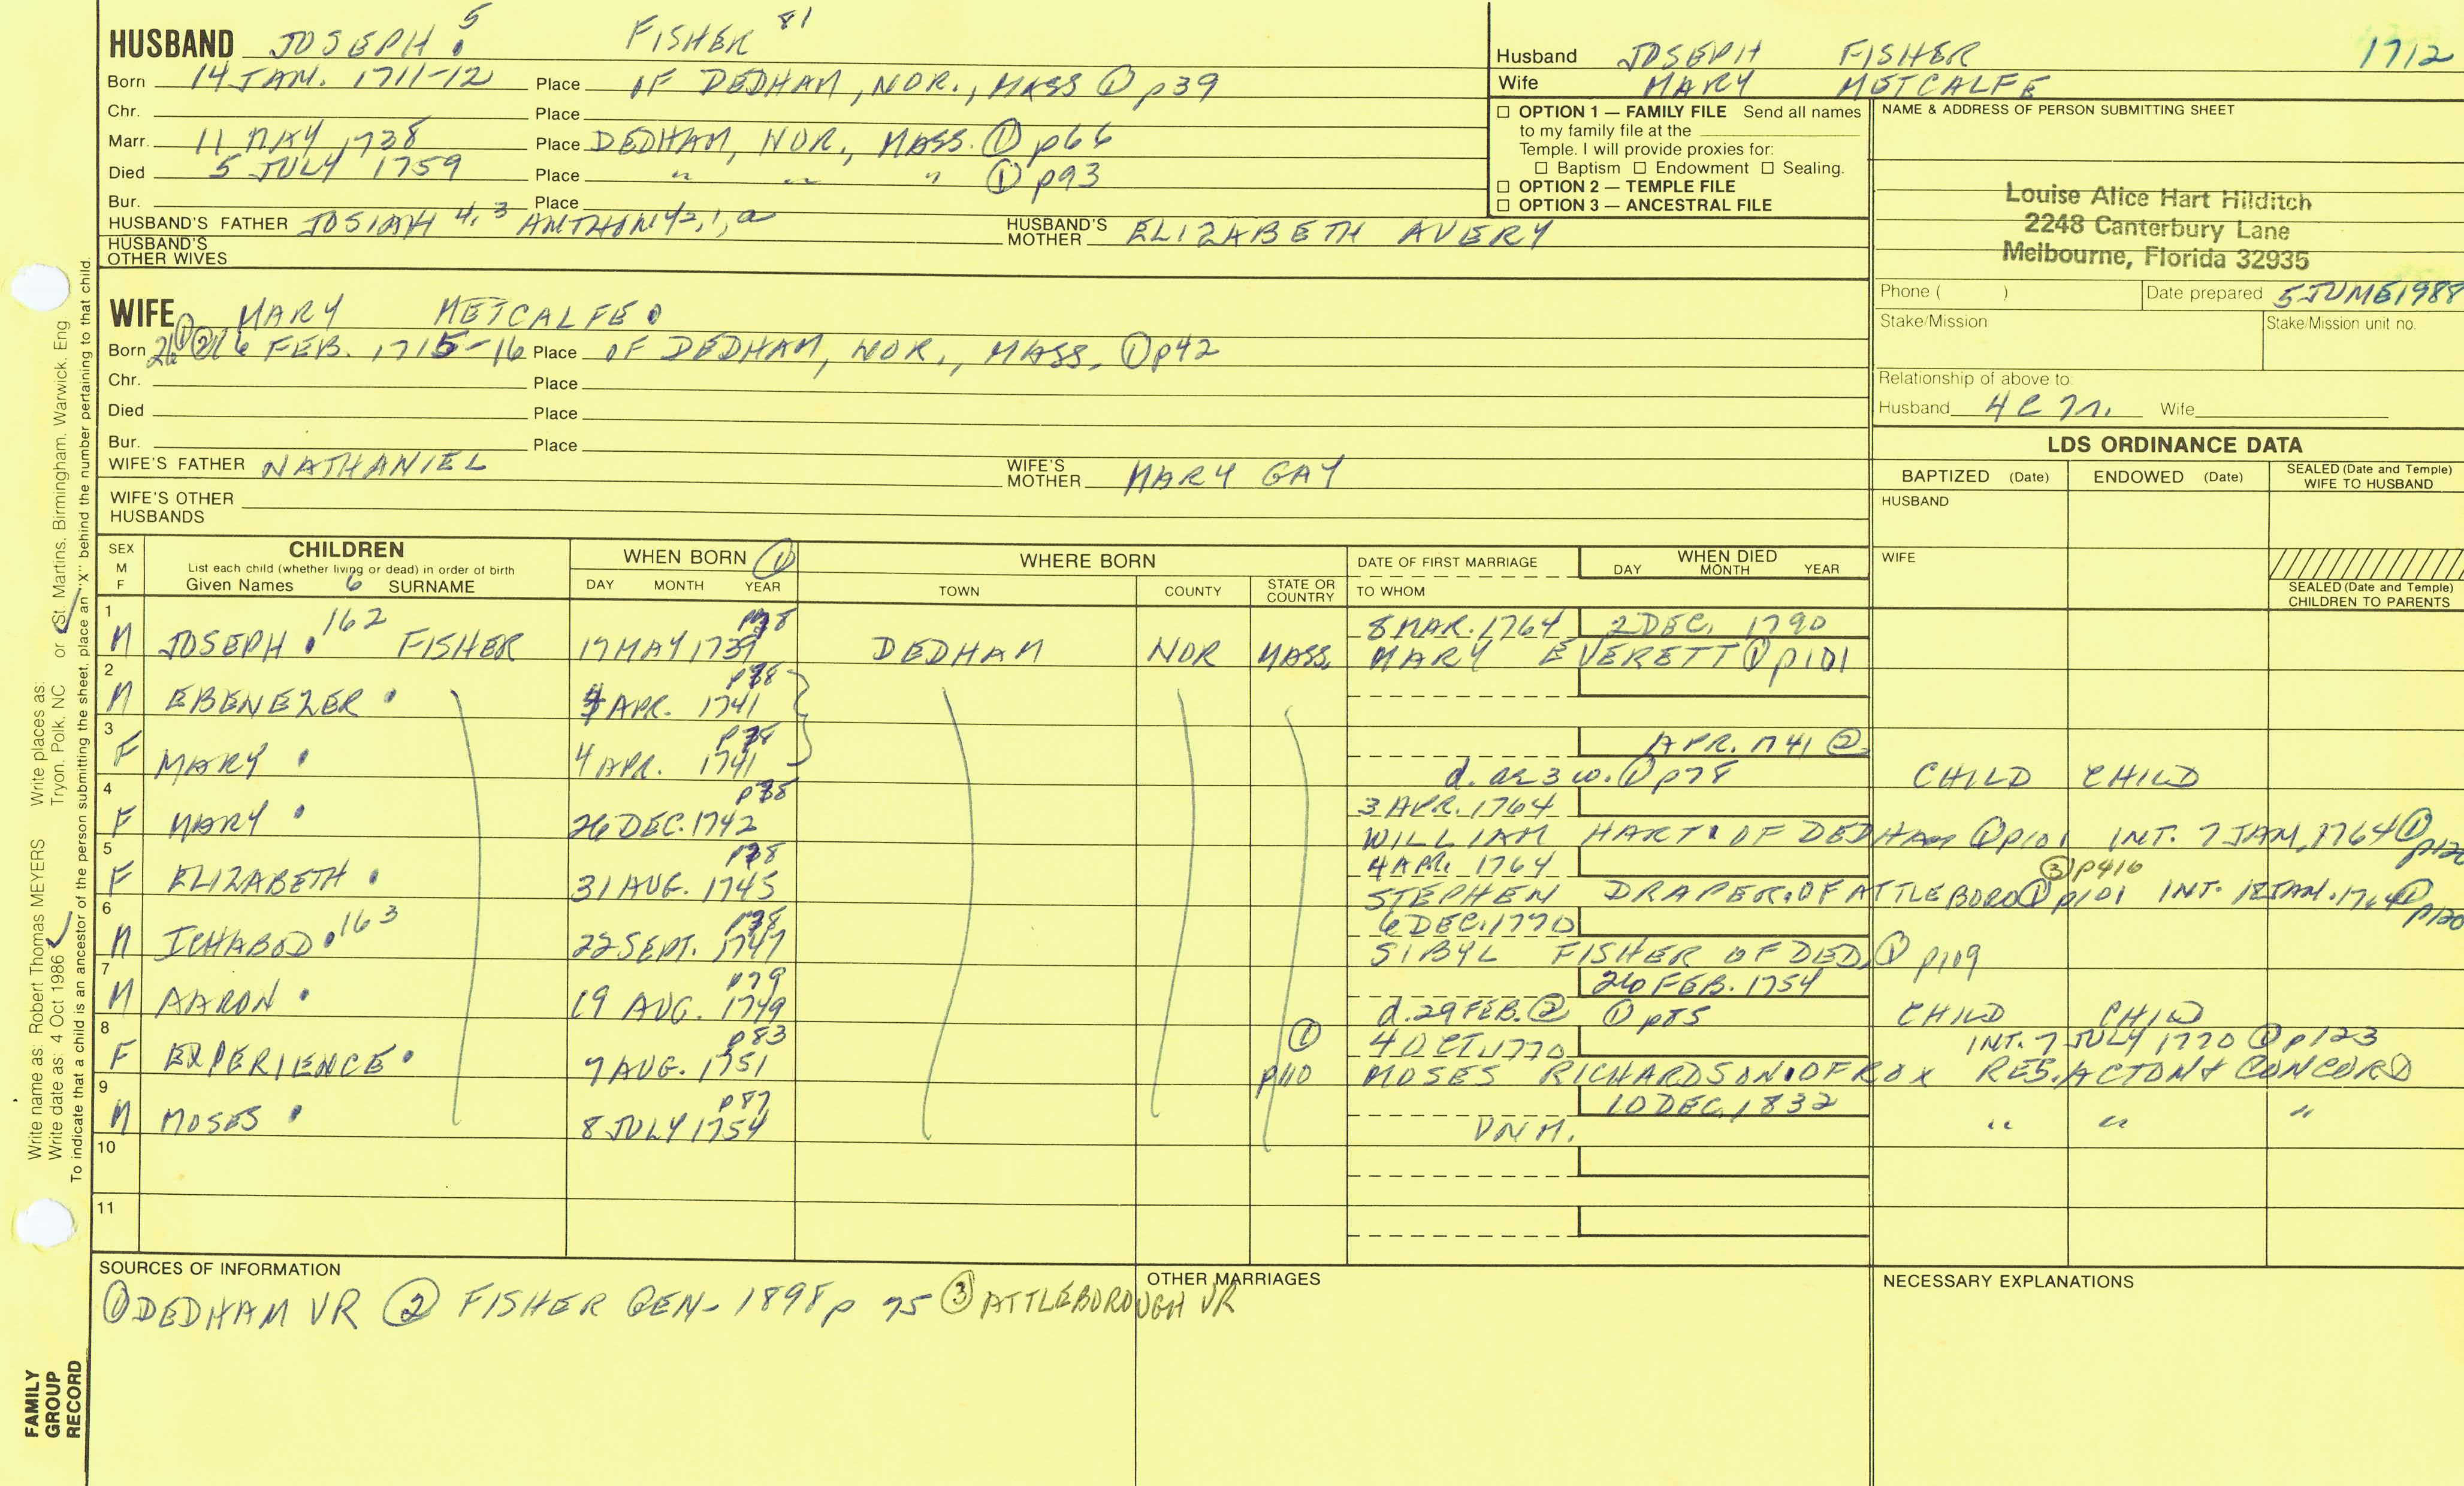 HUSBAND JOSEPH 5 FISHER 81
Born 14 JAN. 1711-12 Place OF DEDHAM, NOR., MASS ① p39
Chr. Place
Marr. 11 MAY 1738 Place DEDHAM, NOR., MASS. ① p66
Died 5 JULY 1759 Place " " " ① p93
Bur. Place
HUSBAND'S FATHER JOSIAH 4,3 ANTHONY 2,1,a HUSBAND'S MOTHER ELIZABETH AVERY
HUSBAND'S OTHER WIVES
Husband JOSEPH FISHER 1712
Wife MARY METCALFE
☐ OPTION 1 — FAMILY FILE Send all names
to my family file at the
Temple. I will provide proxies for:
☐ Baptism ☐ Endowment ☐ Sealing.
☐ OPTION 2 — TEMPLE FILE
☐ OPTION 3 — ANCESTRAL FILE
NAME & ADDRESS OF PERSON SUBMITTING SHEET
Louise Alice Hart Hilditch
2248 Canterbury Lane
Melbourne, Florida 32935
Phone ( ) Date prepared 5 JUNE 1988
Stake/Mission Stake/Mission unit no.
Relationship of above to:
Husband 4C7R. Wife
WIFE MARY METCALFE
Born 26 ① ② 16 FEB. 1715-16 Place OF DEDHAM, NOR., MASS. ① p42
Chr. Place
Died Place
Bur. Place
WIFE'S FATHER NATHANIEL WIFE'S MOTHER MARY GAY
WIFE'S OTHER HUSBANDS
LDS ORDINANCE DATA
BAPTIZED (Date) ENDOWED (Date) SEALED (Date and Temple) WIFE TO HUSBAND
HUSBAND
WIFE
SEALED (Date and Temple) CHILDREN TO PARENTS
SEX M F CHILDREN WHEN BORN ① WHERE BORN DATE OF FIRST MARRIAGE WHEN DIED
List each child (whether living or dead) in order of birth
Given Names 6 SURNAME DAY MONTH YEAR TOWN COUNTY STATE OR COUNTRY TO WHOM DAY MONTH YEAR
1 p78 8 MAR. 1764 2 DEC. 1790
M JOSEPH 162 FISHER 17 MAY 1739 DEDHAM NOR MASS. MARY EVERETT ① p101
2 p78
M EBENEZER 4 APR. 1741
3 p78 APR. 1741 ②
F MARY 4 APR. 1741 d. ae 3 w. ① p78 CHILD CHILD
4 p78 3 APR. 1764
F MARY 26 DEC. 1742 WILLIAM HART OF DEDHAM ① p101 INT. 7 JAN. 1764 ① p120
5 p78 4 APR. 1764 ③ p416
F ELIZABETH 31 AUG. 1745 STEPHEN DRAPER OF ATTLEBORO ① p101 INT. 18 JAN. 1764 ① p120
6 p78 6 DEC. 1770
M ICHABOD 163 22 SEPT. 1747 SIBYL FISHER OF DED. ① p109
7 p79 26 FEB. 1754
M AARON 19 AUG. 1749 d. 29 FEB. ② ① p85 CHILD CHILD
8 p83 ① 4 OCT. 1770 INT. 7 JULY 1770 ① p123
F EXPERIENCE 7 AUG. 1751 p110 MOSES RICHARDSON OF ROX RES. ACTON & CONCORD
9 p87 10 DEC. 1832
M MOSES 8 JULY 1754 DNM. " " "
10
11
SOURCES OF INFORMATION
① DEDHAM VR ② FISHER GEN- 1898 p 75 ③ ATTLEBOROUGH VR
OTHER MARRIAGES
NECESSARY EXPLANATIONS
FAMILY GROUP RECORD
Write name as: Robert Thomas MEYERS Write places as: Tryon, Polk, NC or St. Martins, Birmingham, Warwick, Eng
Write date as: 4 Oct 1986
To indicate that a child is an ancestor of the person submitting the sheet, place an "X" behind the number pertaining to that child.